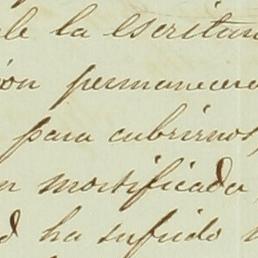 de la escritura
ión permanecer
para cubrirnos,
n mortificada
d ha sufrido